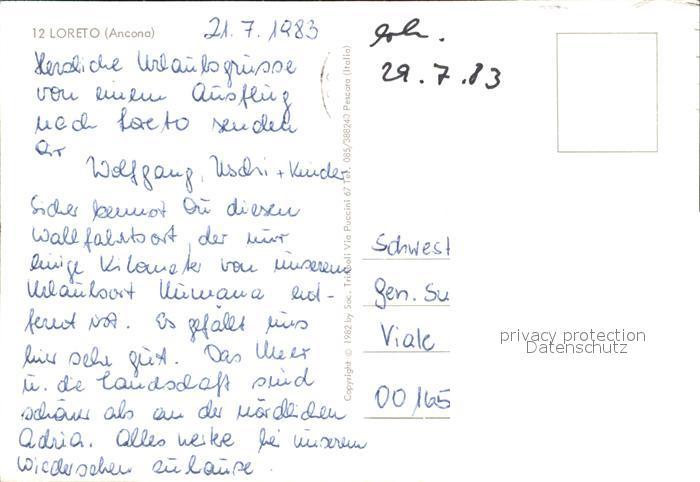 12 LORETO (Ancona)
21.7.1983
erh.
29.7.83
Herzliche Urlaubsgrüsse
von einem Ausflug
nach Loreto senden
Dir
Wolfgang, Uschi + Kinder
Sicher kennst Du diesen
Wallfahrtsort, der nur
einige Kilometer von unserem
Urlaubsort Numana ent-
fernt ist. Es gefällt uns
hier sehr gut. Das Meer
u. die Landschaft sind
schöner als an der nördlichen
Adria. Alles weitere bei unserem
Wiedersehen zuhause.
Copyright © 1982 by Soc. Via Puccini 67 Tel. 085/388240 Pescara (Italia)
Schwest
Gen. Su
Viale
00165
privacy protection
Datenschutz